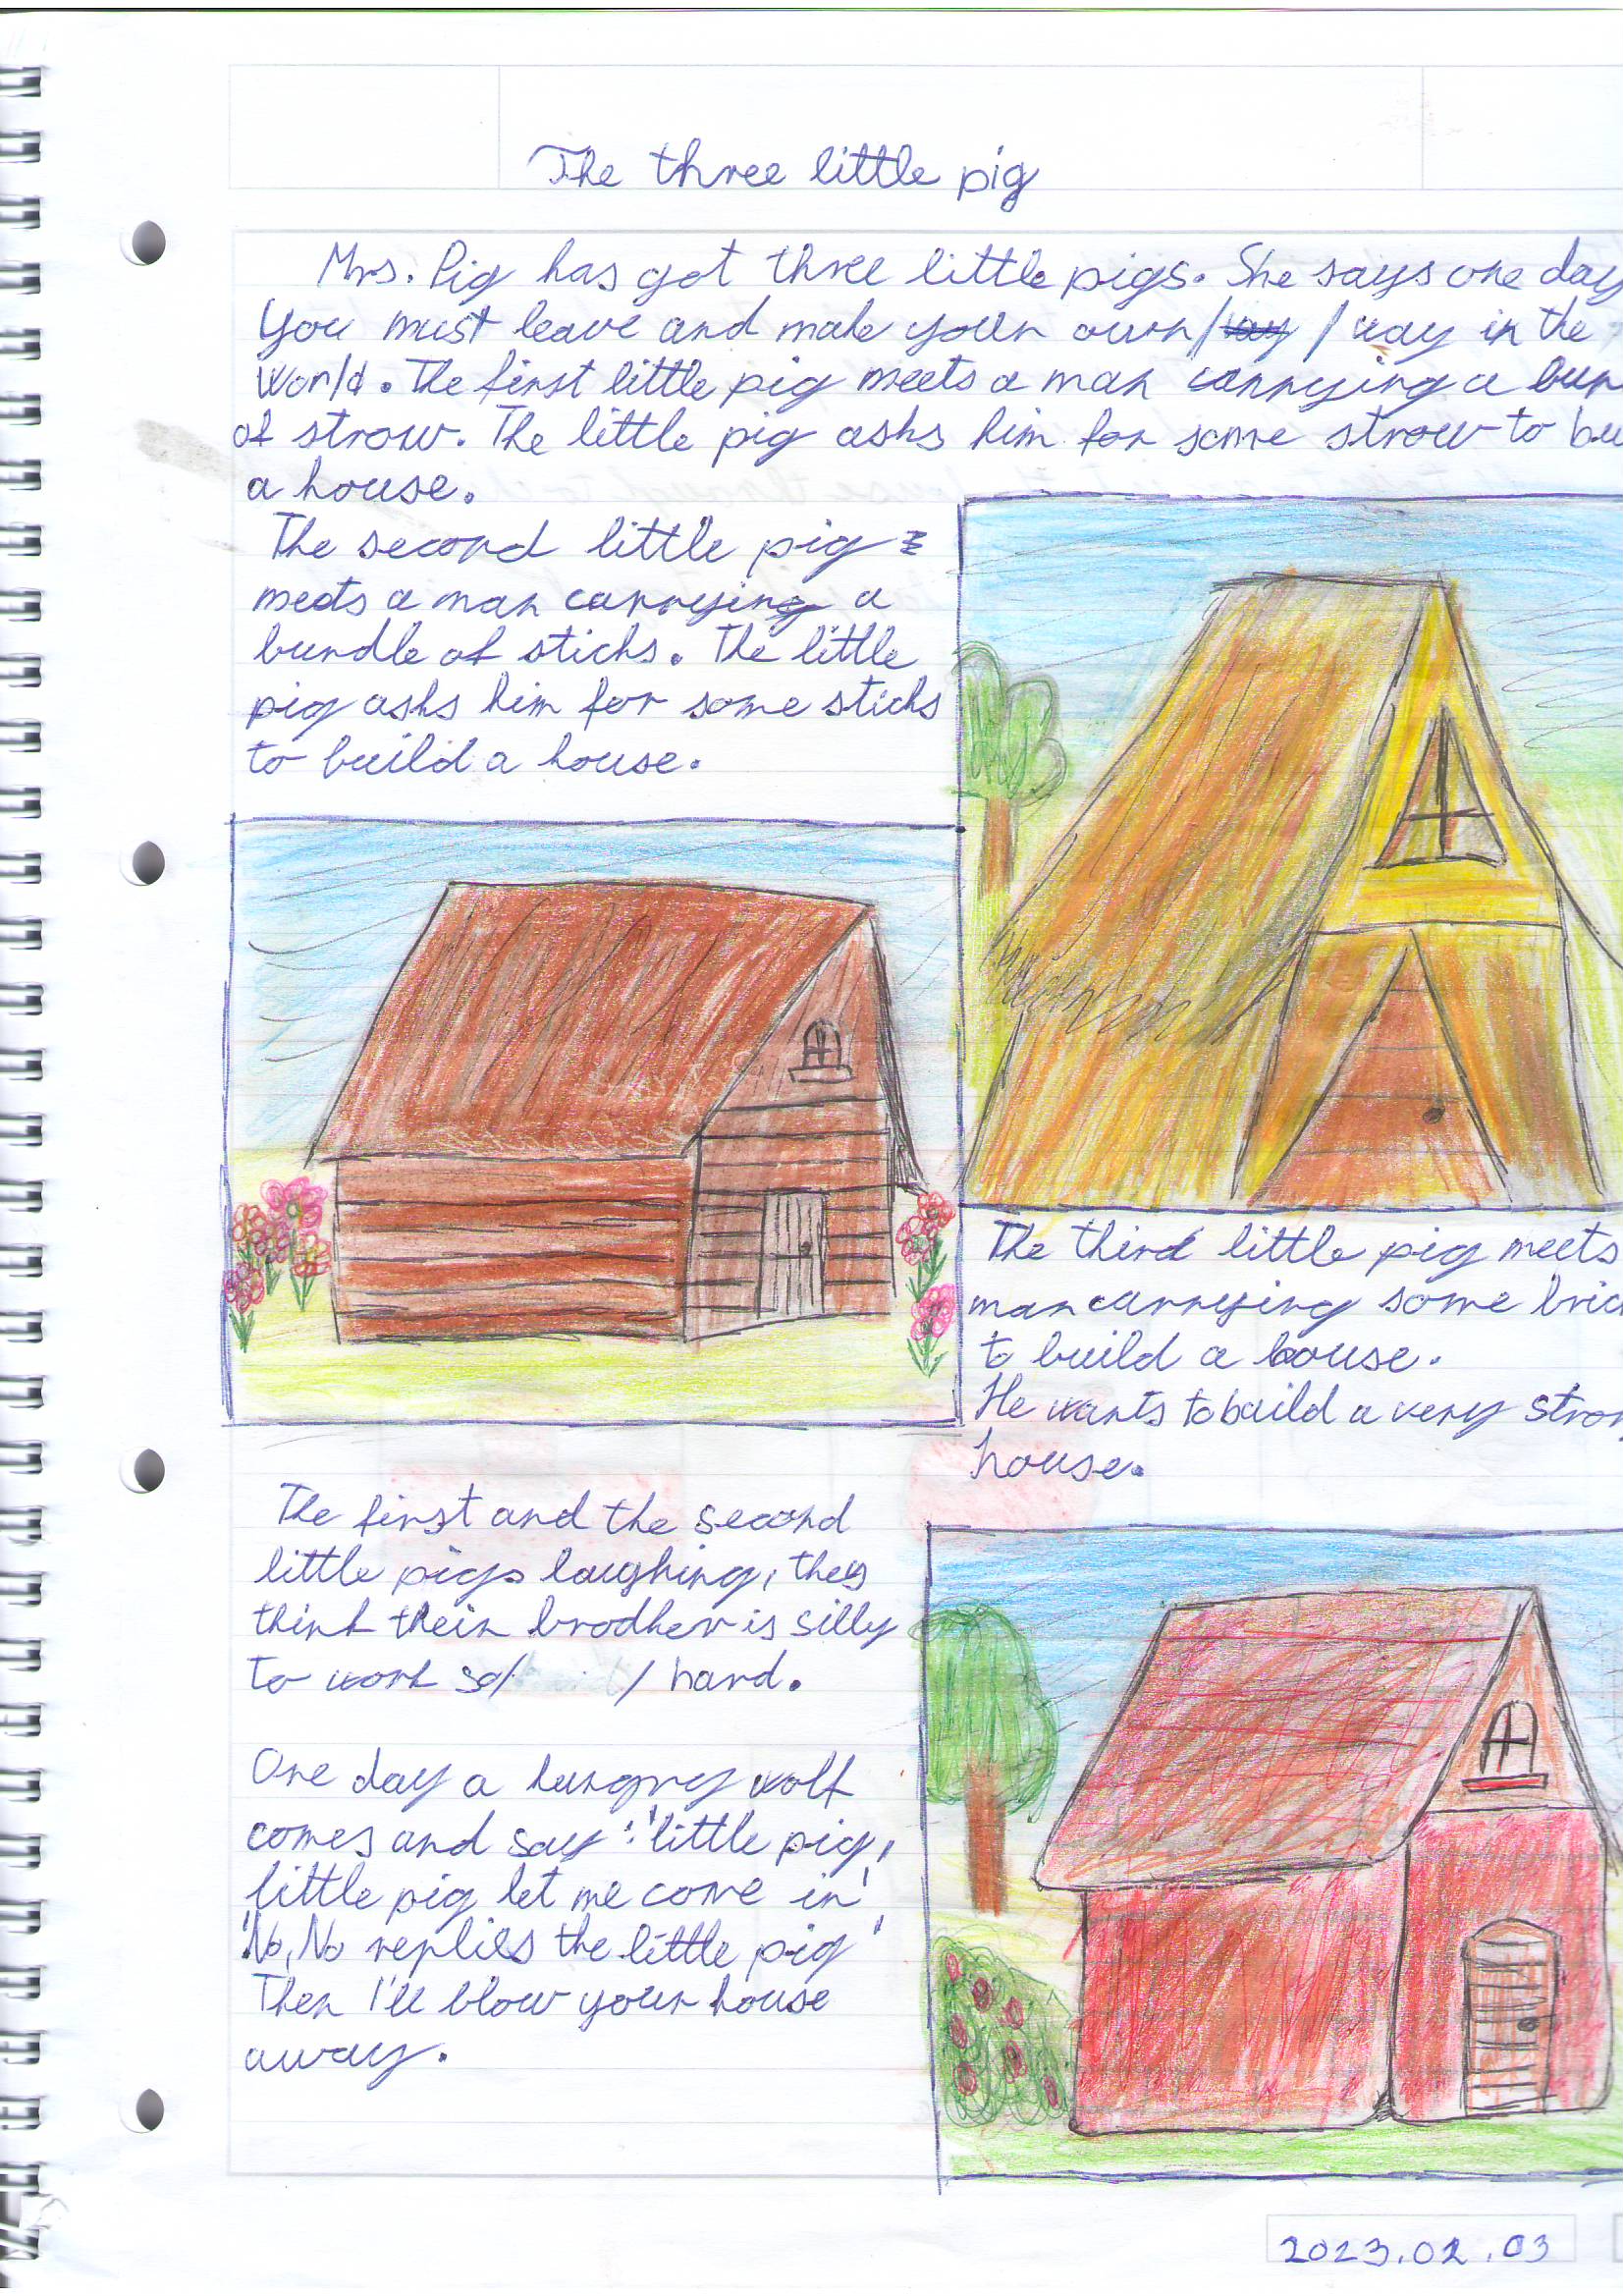 The three little pig
Mrs. Pig has got three little pigs. She says one day
You must leave and make your own / way in the
World. The first little pig meets a man carrying a
of strow. The little pig asks him for some strow to
a house.
The second little pig
meets a man carrying a
bundle of sticks. The little
pig asks him for some sticks
to build a house.
The third little pig meets
man carrying some
to build a house.
He wants to build a very
house.
The first and the second
little pigs laughing, they
think their brodher is silly
to work so / / hard.
One day a hungry wolf
comes and say : 'little pig,
little pig let me come in'
'No, No replies the little pig'
Then I'll blow your house
away.
2023.02.03